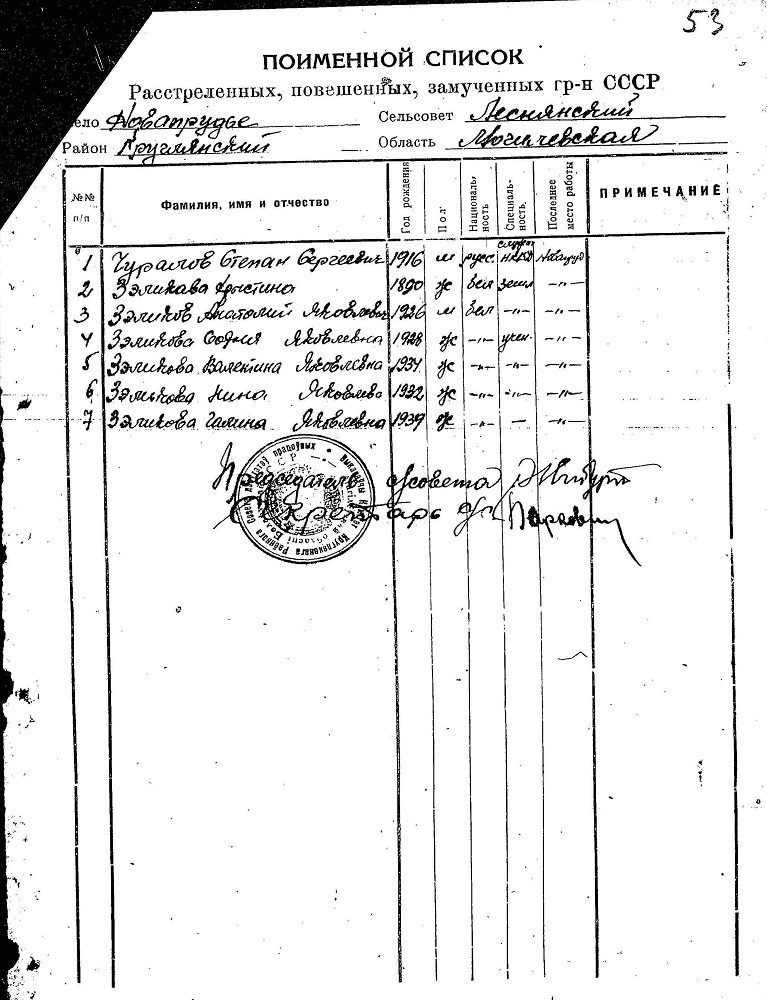 53
ПОИМЕННОЙ СПИСОК
Расстреленных, повешенных, замученных гр-н СССР
ело Новапрудье Сельсовет Леснянский
Район Круглянский Область Могилевская
№№ п/п Фамилия, имя и отчество Год рождения Пол Националь-ность Специаль-ность Последнее место работы ПРИМЕЧАНИЕ
1 Чуралов Степан Сергеевич 1916 м русс НКВД
2 Зэликава Крыстина 1890 ж бел земл -"-
3 Зэликов Анатолий Яковлевич 1926 м бел -"- -"-
4 Зэликова София Яковлевна 1928 ж -"- учен. -"-
5 Зэликова Валентина Яковлевна 1931 ж -"- -"- -"-
6 Зэликова Нина Яковлевна 1932 ж -"- -"- -"-
7 Зэликова Галина Яковлевна 1939 ж -"- — -"-
Председатель с/совета
Секретарь с/с